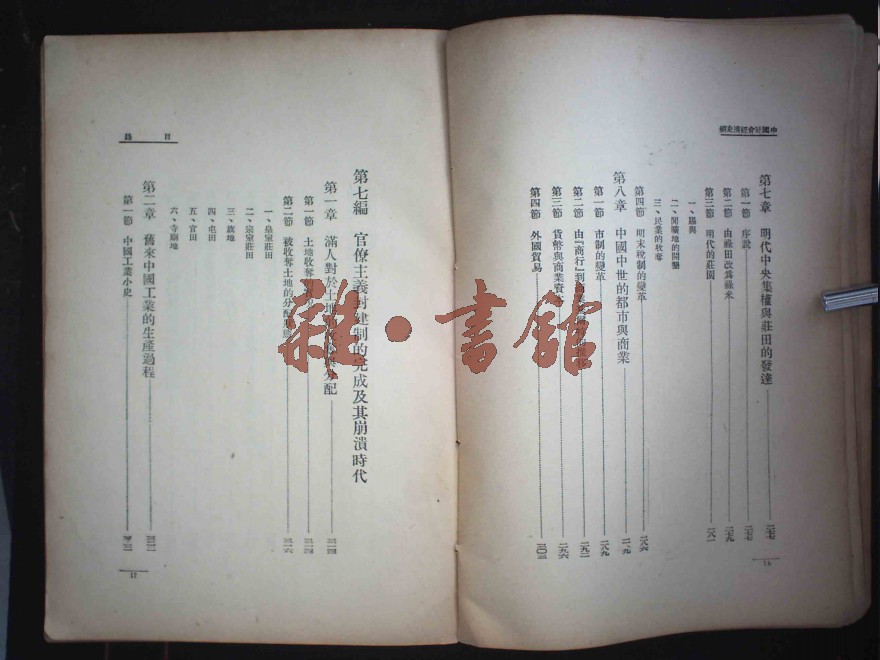 中國社會經濟史綱
第七章 明代中央集權與莊田的發達 二七七
第一節 序說 二七七
第二節 由祿田改爲祿米 二七九
第三節 明代的莊園 二八一
一、賜與
二、閒曠地的開墾
三、民業的收奪
第四節 明末稅制的變革 二八六
第八章 中國中世的都市與商業
第一節 市制的變革 二八九
第二節 由『商行』到 二九二
第三節 貨幣與商業資
第四節 外國貿易 三〇三
16
目錄
第七編 官僚主義封建制的完成及其崩潰時代
第一章 滿人對於土地 分配 三一四
第一節 土地收奪 三一四
第二節 被收奪土地的分配 三一六
一、皇室莊田
二、宗室莊田
三、旗地
四、屯田
五、官田
六、寺廟地
第二章 舊來中國工業的生產過程
第一節 中國工業小史
17
雜·書館